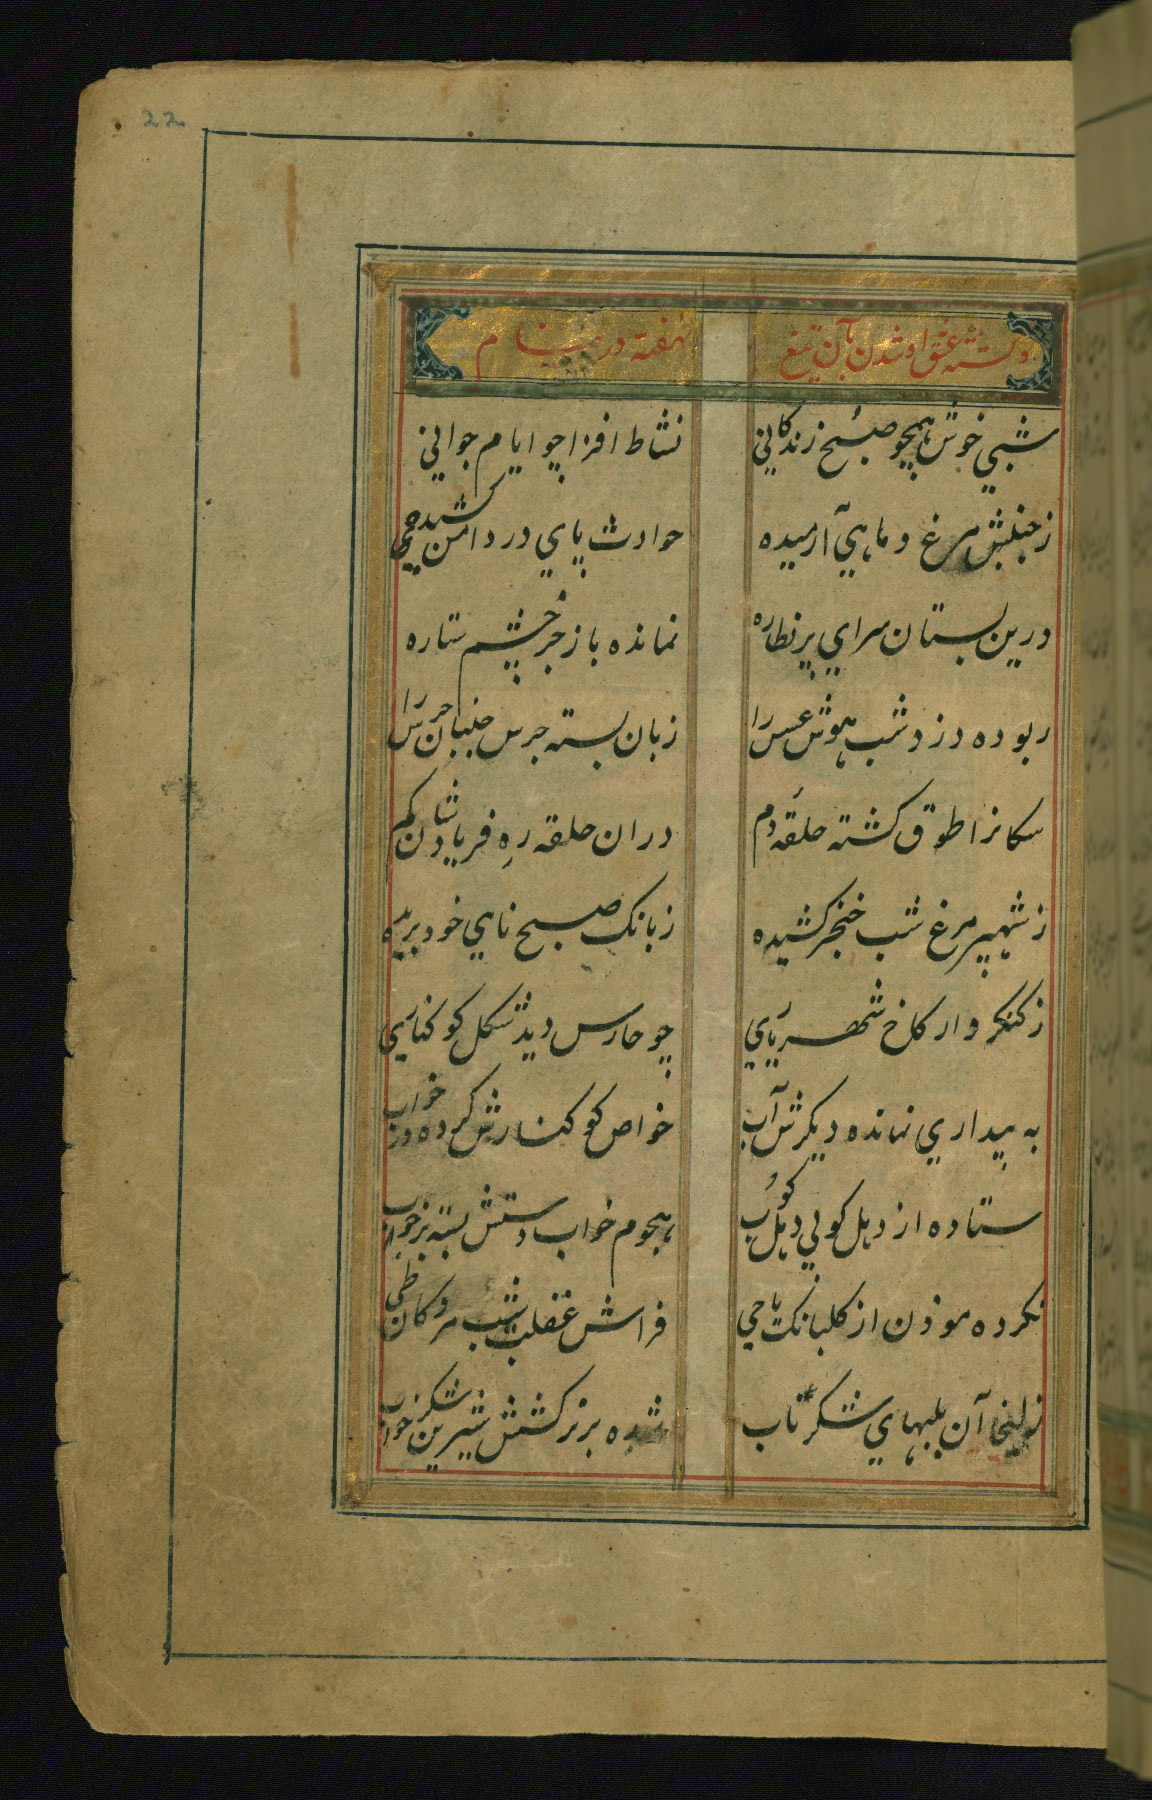 22
و کشته عشق او شدن بآن تیغ نهفته در نیام
شبي خوش همچو صبح زندکاني نشاط افزا چو ایام جواني
ز جنبش مرغ و ماهي آرمیده حوادث پاي در دامن کشیده
درین بستان سراي پر نظاره نمانده باز جز چشم ستاره
ربوده دزد شب هوش عسس را زبان بسته جرس جنبان جرس را
سکانرا طوق کشته حلقه دم در ان حلقه ره فریادشان کم
ز شهپر مرغ شب خنجر کشیده ز بانک صبح ناي خود بریده
ز کنکر دار کاخ شهریاري چو حارس دید شکل کوکناري
به بیداري نمانده دیکرش آب خواص کوکنارش کرده در خواب
ستاده از دهل کوبي دهل کوب هجوم خواب دستش بسته بر چوب
نکرده موذن از کلبانک یا حي فراش غفلت شب مردکان طي
زلیخا آن بلبهاي شکر ناب شده بر نرکسش شیرین شکر خواب